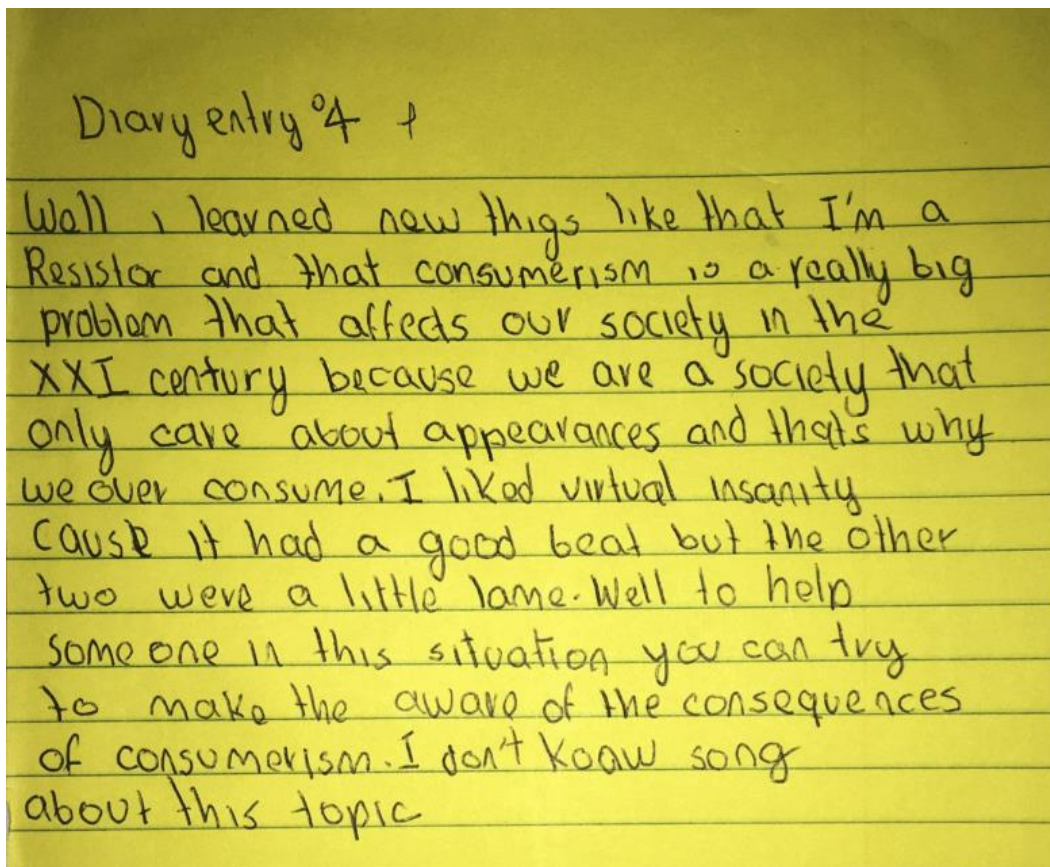 Diary entry °4
Well i learned new thigs like that I'm a
Resistor and that consumerism is a really big
problem that affects our society in the
XXI century because we are a society that
only care about appearances and thats why
we over consume. I liked virtual insanity
cause it had a good beat but the other
two were a little lame. Well to help
some one in this situation you can try
to make the aware of the consequences
of consumerism. I don't knaw song
about this topic